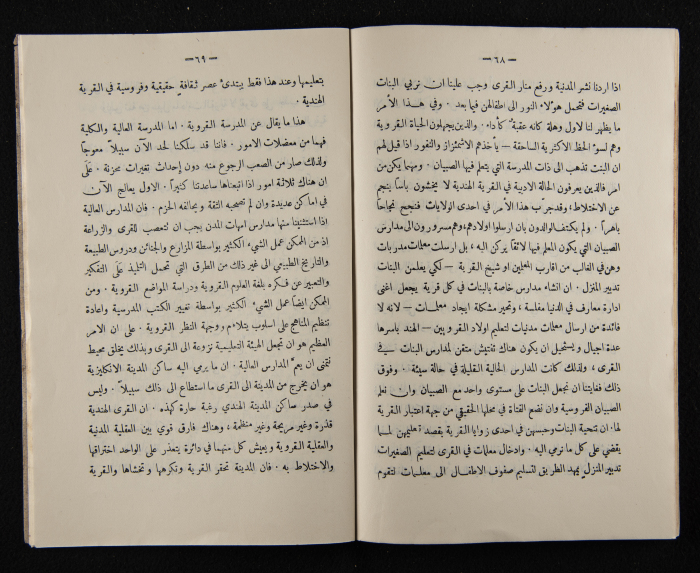 — ٦٨ —
اذا اردنا نشر المدنية ورفع منار القرى وجب علينا ان نربي البنات
الصغيرات فتحمل هؤلاء النور الى اطفالهن فيما بعد . وفي هذا الأمر
ما يظهر لنا لاول وهلة كانه عقبة كأداء . والذين يجهلون الحياة القروية
وهم لسوء الحظ الاكثرية الساحقة — يأخذهم الاشمئزاز والنفور اذا قيل لهم
ان البنت تذهب الى ذات المدرسة التي يتعلم فيها الصبيان . ومهما يكن من
امر فالذين يعرفون الحالة الادبية في القرية الهندية لا يخشون باساً ينجم
عن الاختلاط ، وقد جرّب هذا الأمر في احدى الولايات فنجح نجاحاً
باهراً . ولم يكتف الوالدون بان ارسلوا اولادهم، وهم مسرورون الى مدارس
الصبيان التي يكون المعلم فيها لائقاً يركن اليه ، بل ارسلت معلمات مدربات
وهن في الغالب من اقارب المعلمين او شيخ القرية — لكي يعلمن البنات
تدبير المنزل . ان انشاء مدارس خاصة بالبنات في كل قرية يجعل اغنى
ادارة معارف في الدنيا مفلسة ، وتحير مشكلة ايجاد معلمات — لانه لا
فائدة من ارسال معلمات مدنيات لتعليم اولاد القرويين — الهند باسرها
عدة اجيال ويستحيل ان يكون هناك تفتيش متقن لمدارس البنات في
القرى ، ولذلك كانت المدارس الحالية القليلة في حالة سيئة . وفوق
ذلك فغايتنا ان نجعل البنات على مستوى واحد مع الصبيان وان نعلم
الصبيان الفروسية وان نضع الفتاة في محلها الحقيقي من جهة اعتبار القرية
لها. ان تنحية البنات وحبسهن في احدى زوايا القرية بقصد تعليمهن لمما
يقضي على كل ما نرمي اليه . وادخال معلمات في القرى لتعليم الصغيرات
تدبير المنزل يمهد الطريق لتسليم صفوف الاطفال الى معلمات لتقوم
— ٦٩ —
بتعليمها وعند هذا فقط يبتدئ عصر ثقافة حقيقية وفروسية في القرية
الهندية .
هذا ما يقال عن المدرسة القروية . اما المدرسة العالية والكلية
فهما من معضلات الامور . فاننا قد سلكنا لحد الآن سبيلاً معوجاً
ولذلك صار من الصعب الرجوع منه دون إحداث تغيرات محزنة . عَلَى
ان هناك ثلاثة امور اذا اتبعناها ساعدتنا كثيراً . الاول يعالج الآن
في اماكن عديدة وان لم تصحبه الثقة ويحالفه الحزم . فان المدارس العالية
اذا استثنينا منها مدارس امهات المدن يجب ان تتعصب للقرى والزراعة
اذ من الممكن عمل الشيء الكثير بواسطة المزارع والجنائن ودروس الطبيعة
والتاريخ الطبيعي الى غير ذلك من الطرق التي تحمل التلميذ عَلَى التفكير
والتعبير عن فكره بلغة العلوم القروية ودراسة المواضع القروية . ومن
الممكن ايضاً عمل الشيء الكثير بواسطة تغيير الكتب المدرسية واعادة
تنظيم المناهج على اسلوب يتلاءم ووجهة النظر القروية . على ان الامر
العظيم هو ان تجعل الهيئة التعليمية نزوعة الى القرى وبذلك يخلق محيط
نتمنى ان يعم المدارس العالية . ان ما يرمي اليه ساكن المدينة الانكليزية
هو ان يخرج من المدينة الى القرى ما استطاع الى ذلك سبيلاً . وليس
في صدر ساكن المدينة الهندي رغبة حارة كهذه . ان القرى الهندية
قذرة وغير مريحة وغير منظمة ، وهناك فارق قوي بين العقلية المدنية
والعقلية القروية ويعيش كل منهما في دائرة يتعذر على الواحد اختراقها
والاختلاط به . فان المدينة تحقر القرية وتكرهها وتخشاها والقرية